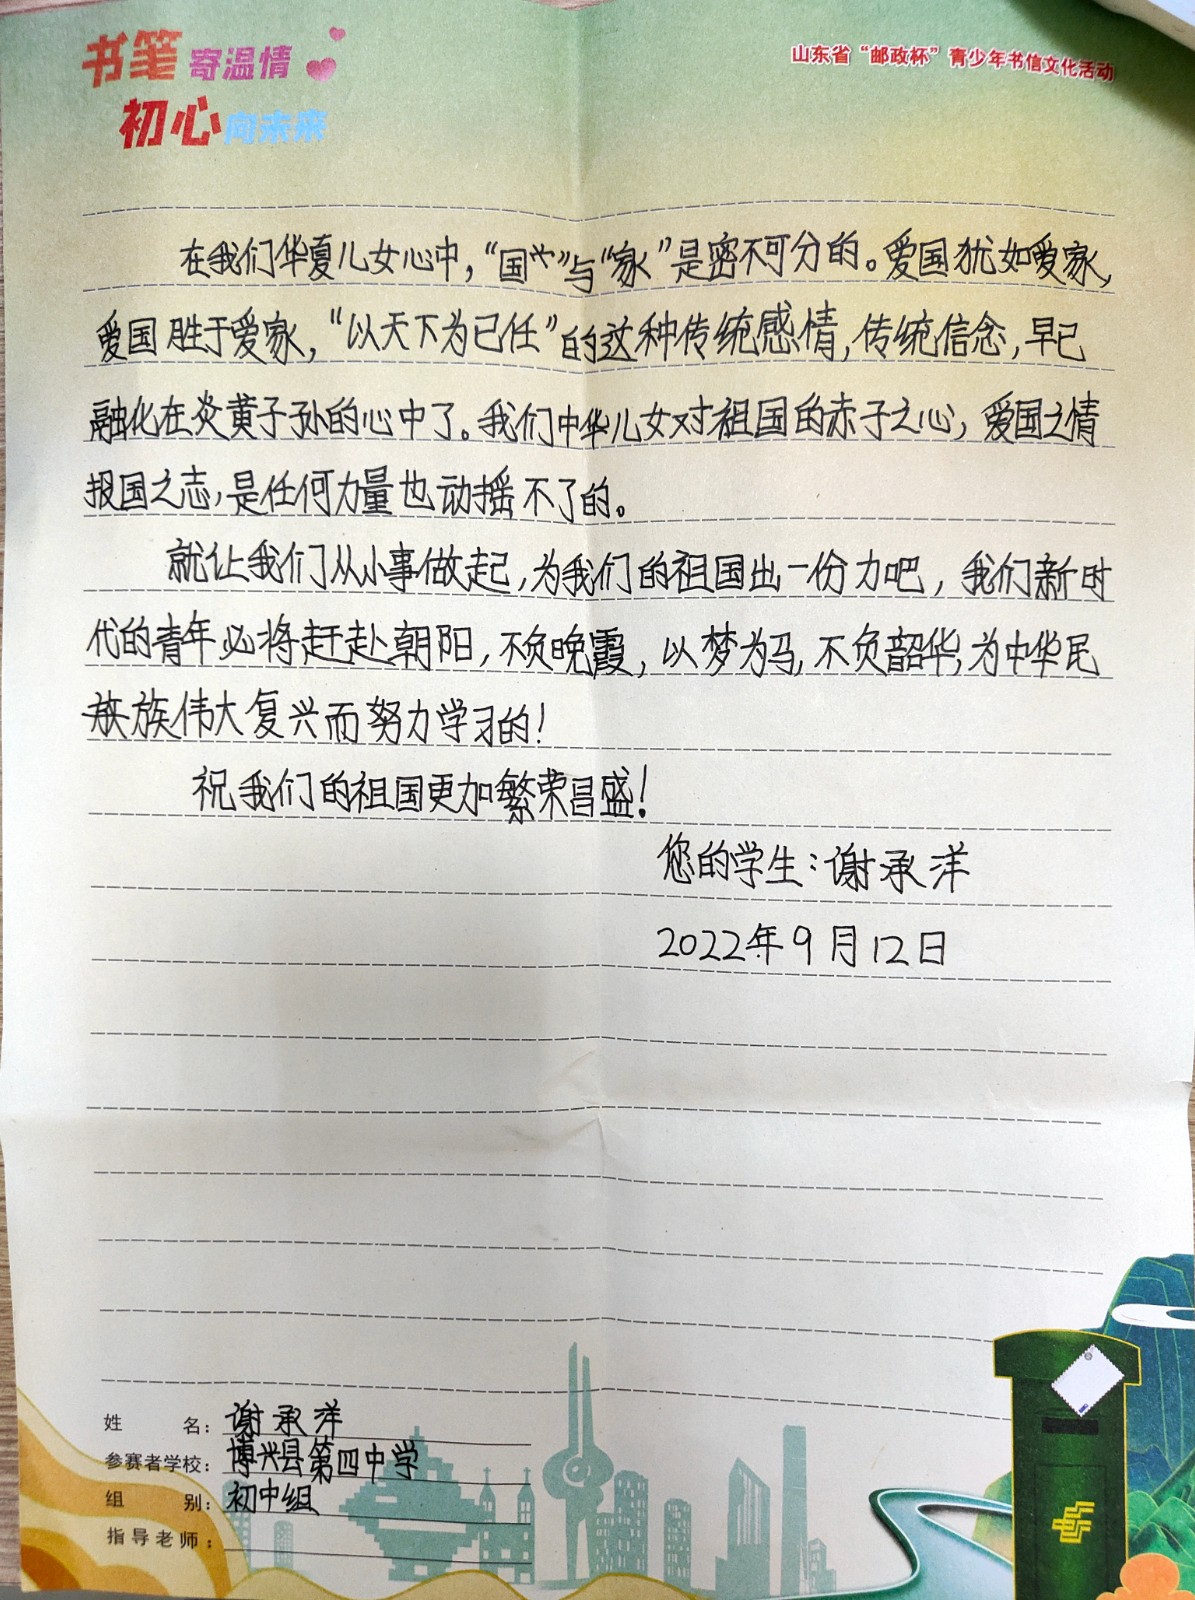 书笔寄温情
初心向未来
山东省“邮政杯”青少年书信文化活动
在我们华夏儿女心中，“国”与“家”是密不可分的。爱国犹如爱家，
爱国胜于爱家，“以天下为己任”的这种传统感情，传统信念，早已
融化在炎黄子孙的心中了。我们中华儿女对祖国的赤子之心，爱国之情
报国之志，是任何力量也动摇不了的。
就让我们从小事做起，为我们的祖国出一份力吧，我们新时
代的青年必将赶赴朝阳，不负晚霞，以梦为马，不负韶华，为中华民
族族伟大复兴而努力学习的！
祝我们的祖国更加繁荣昌盛！
您的学生：谢承洋
2022年9月12日
姓 名：谢承洋
参赛者学校：博兴县第四中学
组 别：初中组
指导老师：